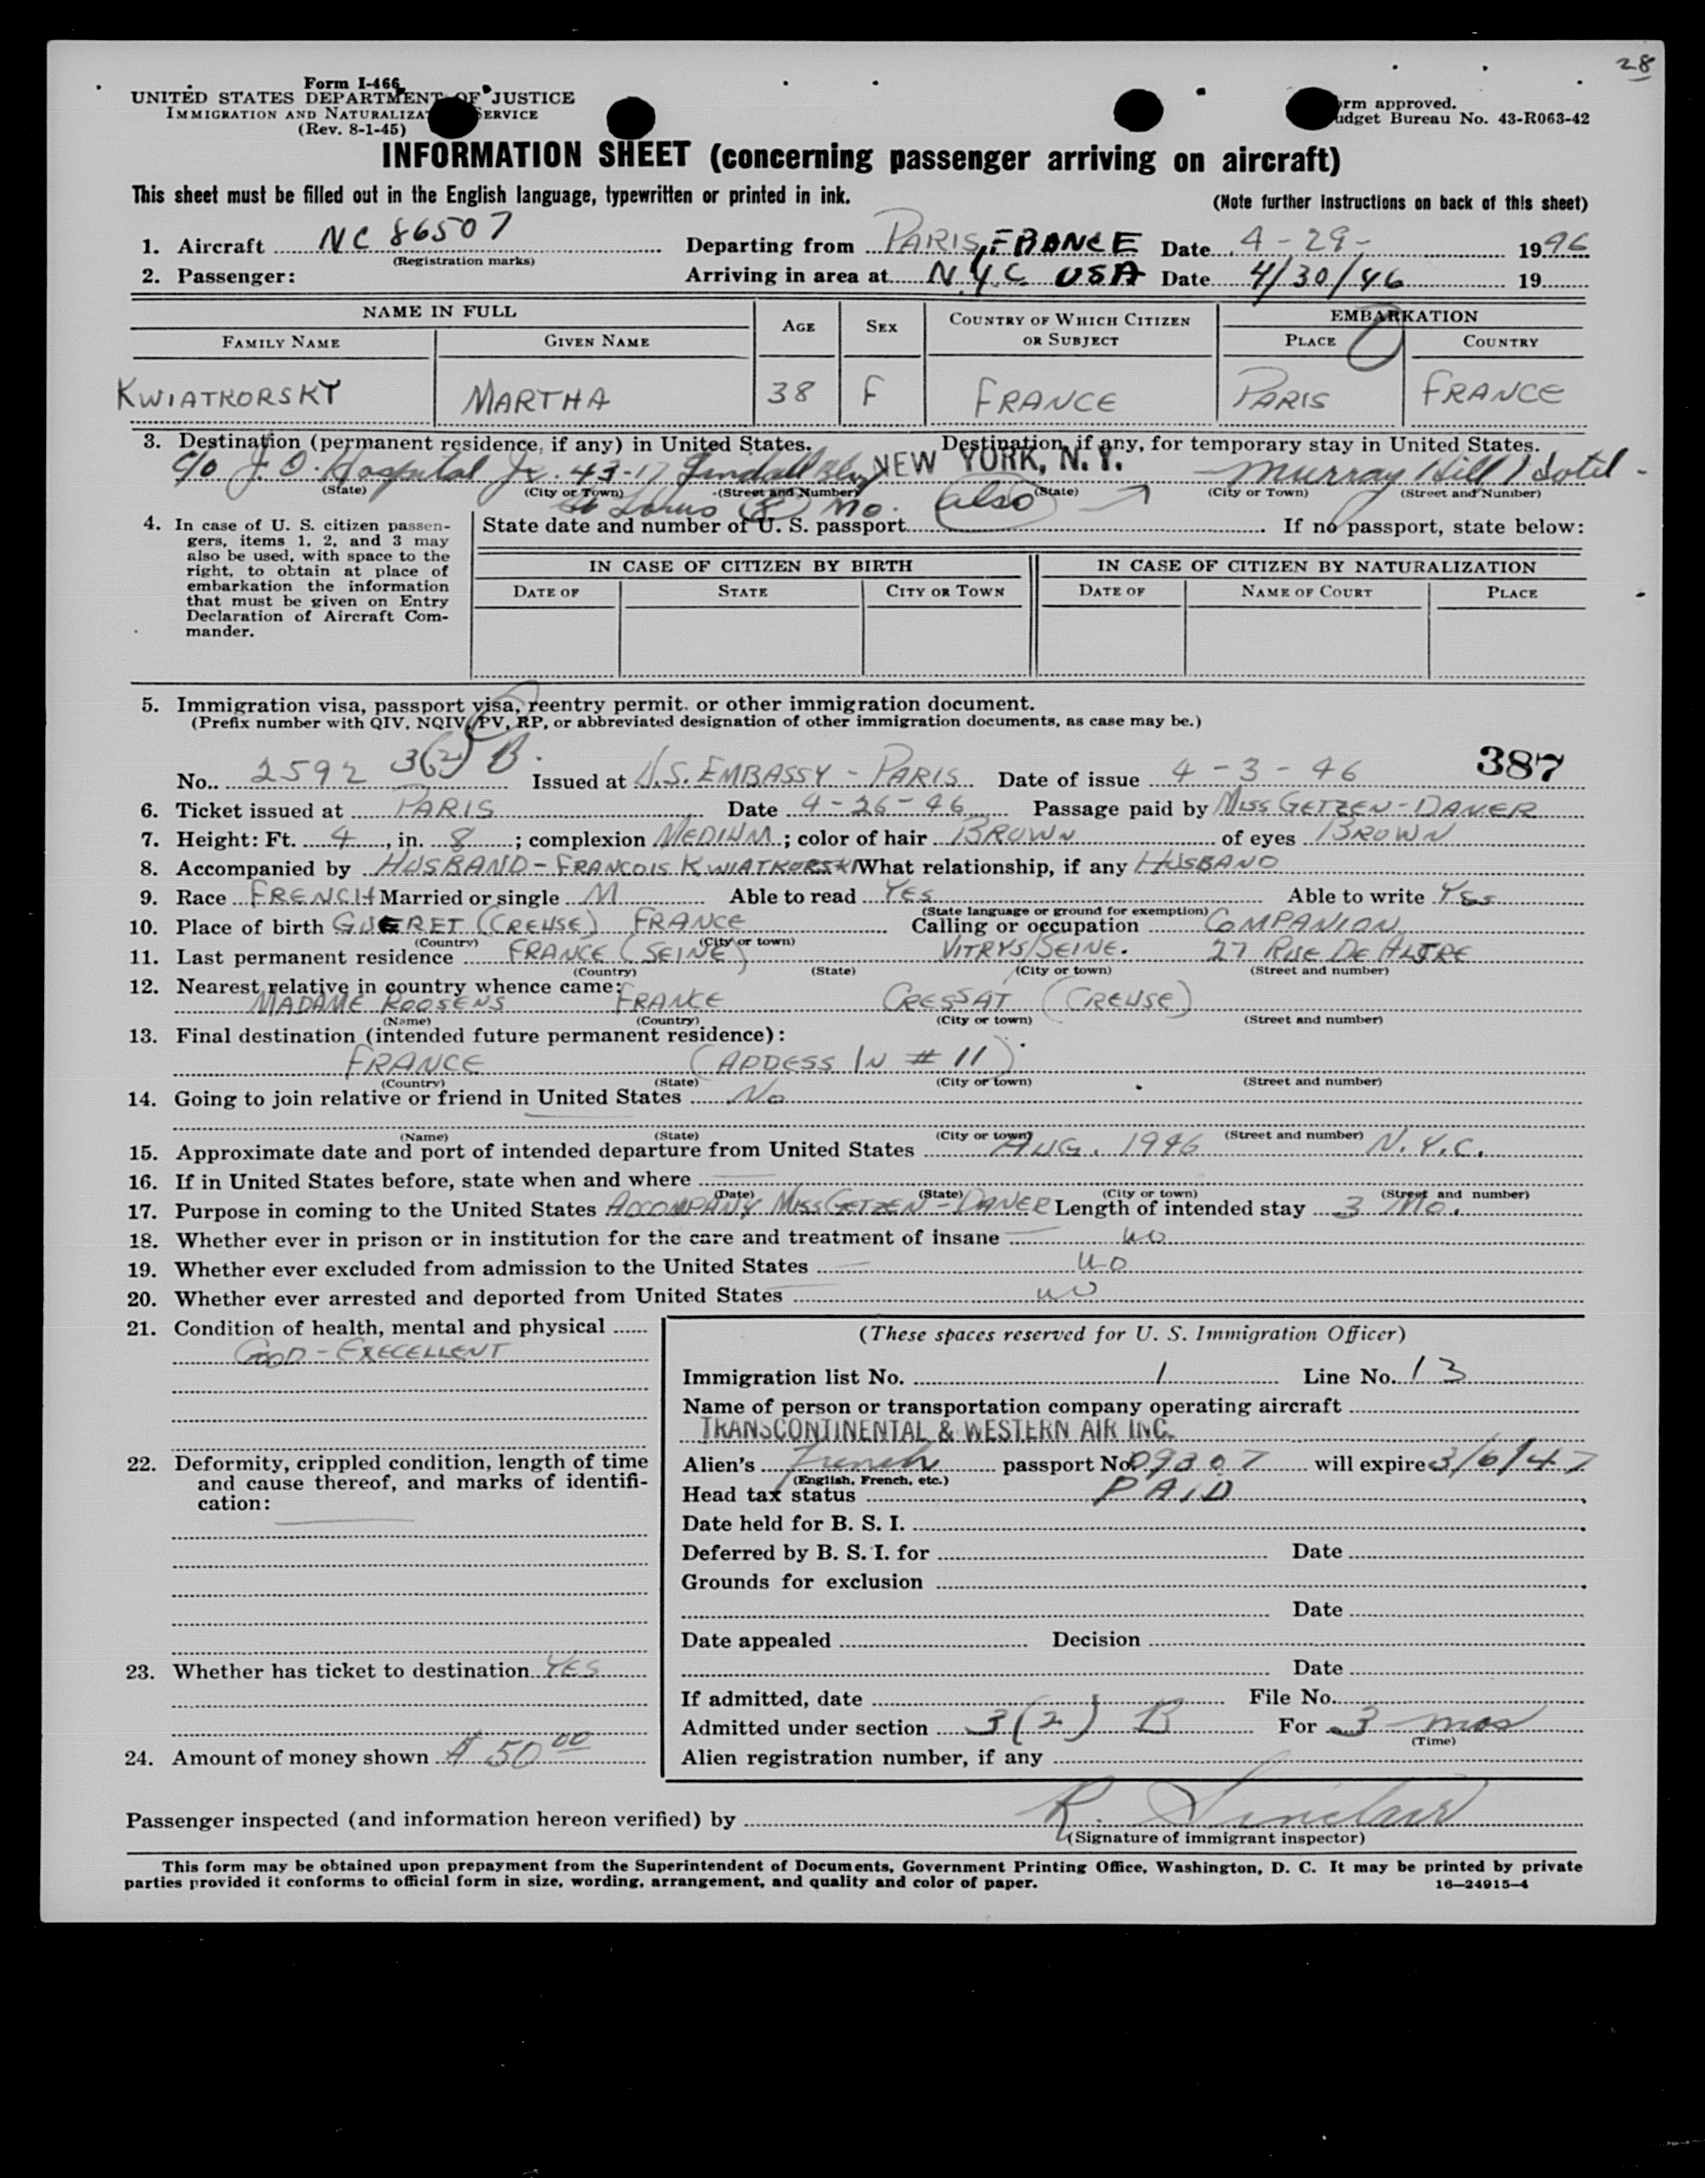 28
Form I-466
UNITED STATES DEPARTMENT OF JUSTICE
IMMIGRATION AND NATURALIZA ERVICE
(Rev. 8-1-45)
rm approved.
udget Bureau No. 43-R063-42
INFORMATION SHEET (concerning passenger arriving on aircraft)
This sheet must be filled out in the English language, typewritten or printed in ink.
(Note further instructions on back of this sheet)
1. Aircraft NC 86507 Departing from PARIS, FRANCE Date 4-29- 1946
(Registration marks)
2. Passenger: Arriving in area at N.Y.C USA Date 4/30/46 19
NAME IN FULL AGE SEX COUNTRY OF WHICH CITIZEN OR SUBJECT EMBARKATION
FAMILY NAME GIVEN NAME PLACE COUNTRY
KWIATKORSKY MARTHA 38 F FRANCE PARIS FRANCE
3. Destination (permanent residence, if any) in United States. Destination, if any, for temporary stay in United States.
c/o J. O. Hospital Jr. 43-17 Lindall Blv NEW YORK, N. Y. Murray Hill Hotel -
(State) (City or Town) (Street and Number) (State) (City or Town) (Street and Number)
St Louis (8) Mo. also
4. In case of U. S. citizen passengers, items 1, 2, and 3 may also be used, with space to the right, to obtain at place of embarkation the information that must be given on Entry Declaration of Aircraft Commander.
State date and number of U. S. passport If no passport, state below:
IN CASE OF CITIZEN BY BIRTH IN CASE OF CITIZEN BY NATURALIZATION
DATE OF STATE CITY OR TOWN DATE OF NAME OF COURT PLACE
5. Immigration visa, passport visa, reentry permit. or other immigration document.
(Prefix number with QIV, NQIV, PV, RP, or abbreviated designation of other immigration documents, as case may be.)
387
No. 2592 3(2) B. Issued at U.S. EMBASSY - PARIS Date of issue 4-3-46
6. Ticket issued at PARIS Date 4-26-46 Passage paid by MISS GETZEN-DANER
7. Height: Ft. 4, in. 8; complexion MEDIUM; color of hair BROWN of eyes BROWN
8. Accompanied by HUSBAND - FRANCOIS KWIATKORSKI What relationship, if any HUSBAND
9. Race FRENCH Married or single M Able to read YES Able to write YES
(State language or ground for exemption)
10. Place of birth GUERET (CREUSE) FRANCE Calling or occupation COMPANION
(Country) (City or town)
11. Last permanent residence FRANCE (SEINE) VITRYS/SEINE. 27 RUE DE
(Country) (State) (City or town) (Street and number)
12. Nearest relative in country whence came:
MADAME ROOSENS FRANCE CRESSAT (CREUSE)
(Name) (Country) (City or town) (Street and number)
13. Final destination (intended future permanent residence):
FRANCE (ADDESS IN # 11)
(Country) (State) (City or town) (Street and number)
14. Going to join relative or friend in United States No
(Name) (State) (City or town) (Street and number)
15. Approximate date and port of intended departure from United States AUG. 1946 N.Y.C.
16. If in United States before, state when and where
(Date) (State) (City or town) (Street and number)
17. Purpose in coming to the United States ACCOMPANY MISS GETZEN-DANER Length of intended stay 3 Mo.
18. Whether ever in prison or in institution for the care and treatment of insane no
19. Whether ever excluded from admission to the United States no
20. Whether ever arrested and deported from United States no
21. Condition of health, mental and physical
GOOD - EXECELLENT
22. Deformity, crippled condition, length of time and cause thereof, and marks of identification:
23. Whether has ticket to destination YES
24. Amount of money shown $ 50 00
(These spaces reserved for U. S. Immigration Officer)
Immigration list No. 1 Line No. 13
Name of person or transportation company operating aircraft
TRANSCONTINENTAL & WESTERN AIR INC.
Alien's French passport No. 09307 will expire 3/6/47
(English, French, etc.)
Head tax status PAID
Date held for B. S. I.
Deferred by B. S. I. for Date
Grounds for exclusion
Date
Date appealed Decision
Date
If admitted, date File No.
Admitted under section 3(2) B For 3 mos
(Time)
Alien registration number, if any
Passenger inspected (and information hereon verified) by R. Sinclair
(Signature of immigrant inspector)
This form may be obtained upon prepayment from the Superintendent of Documents, Government Printing Office, Washington, D. C. It may be printed by private
parties provided it conforms to official form in size, wording, arrangement, and quality and color of paper. 16—24915-4